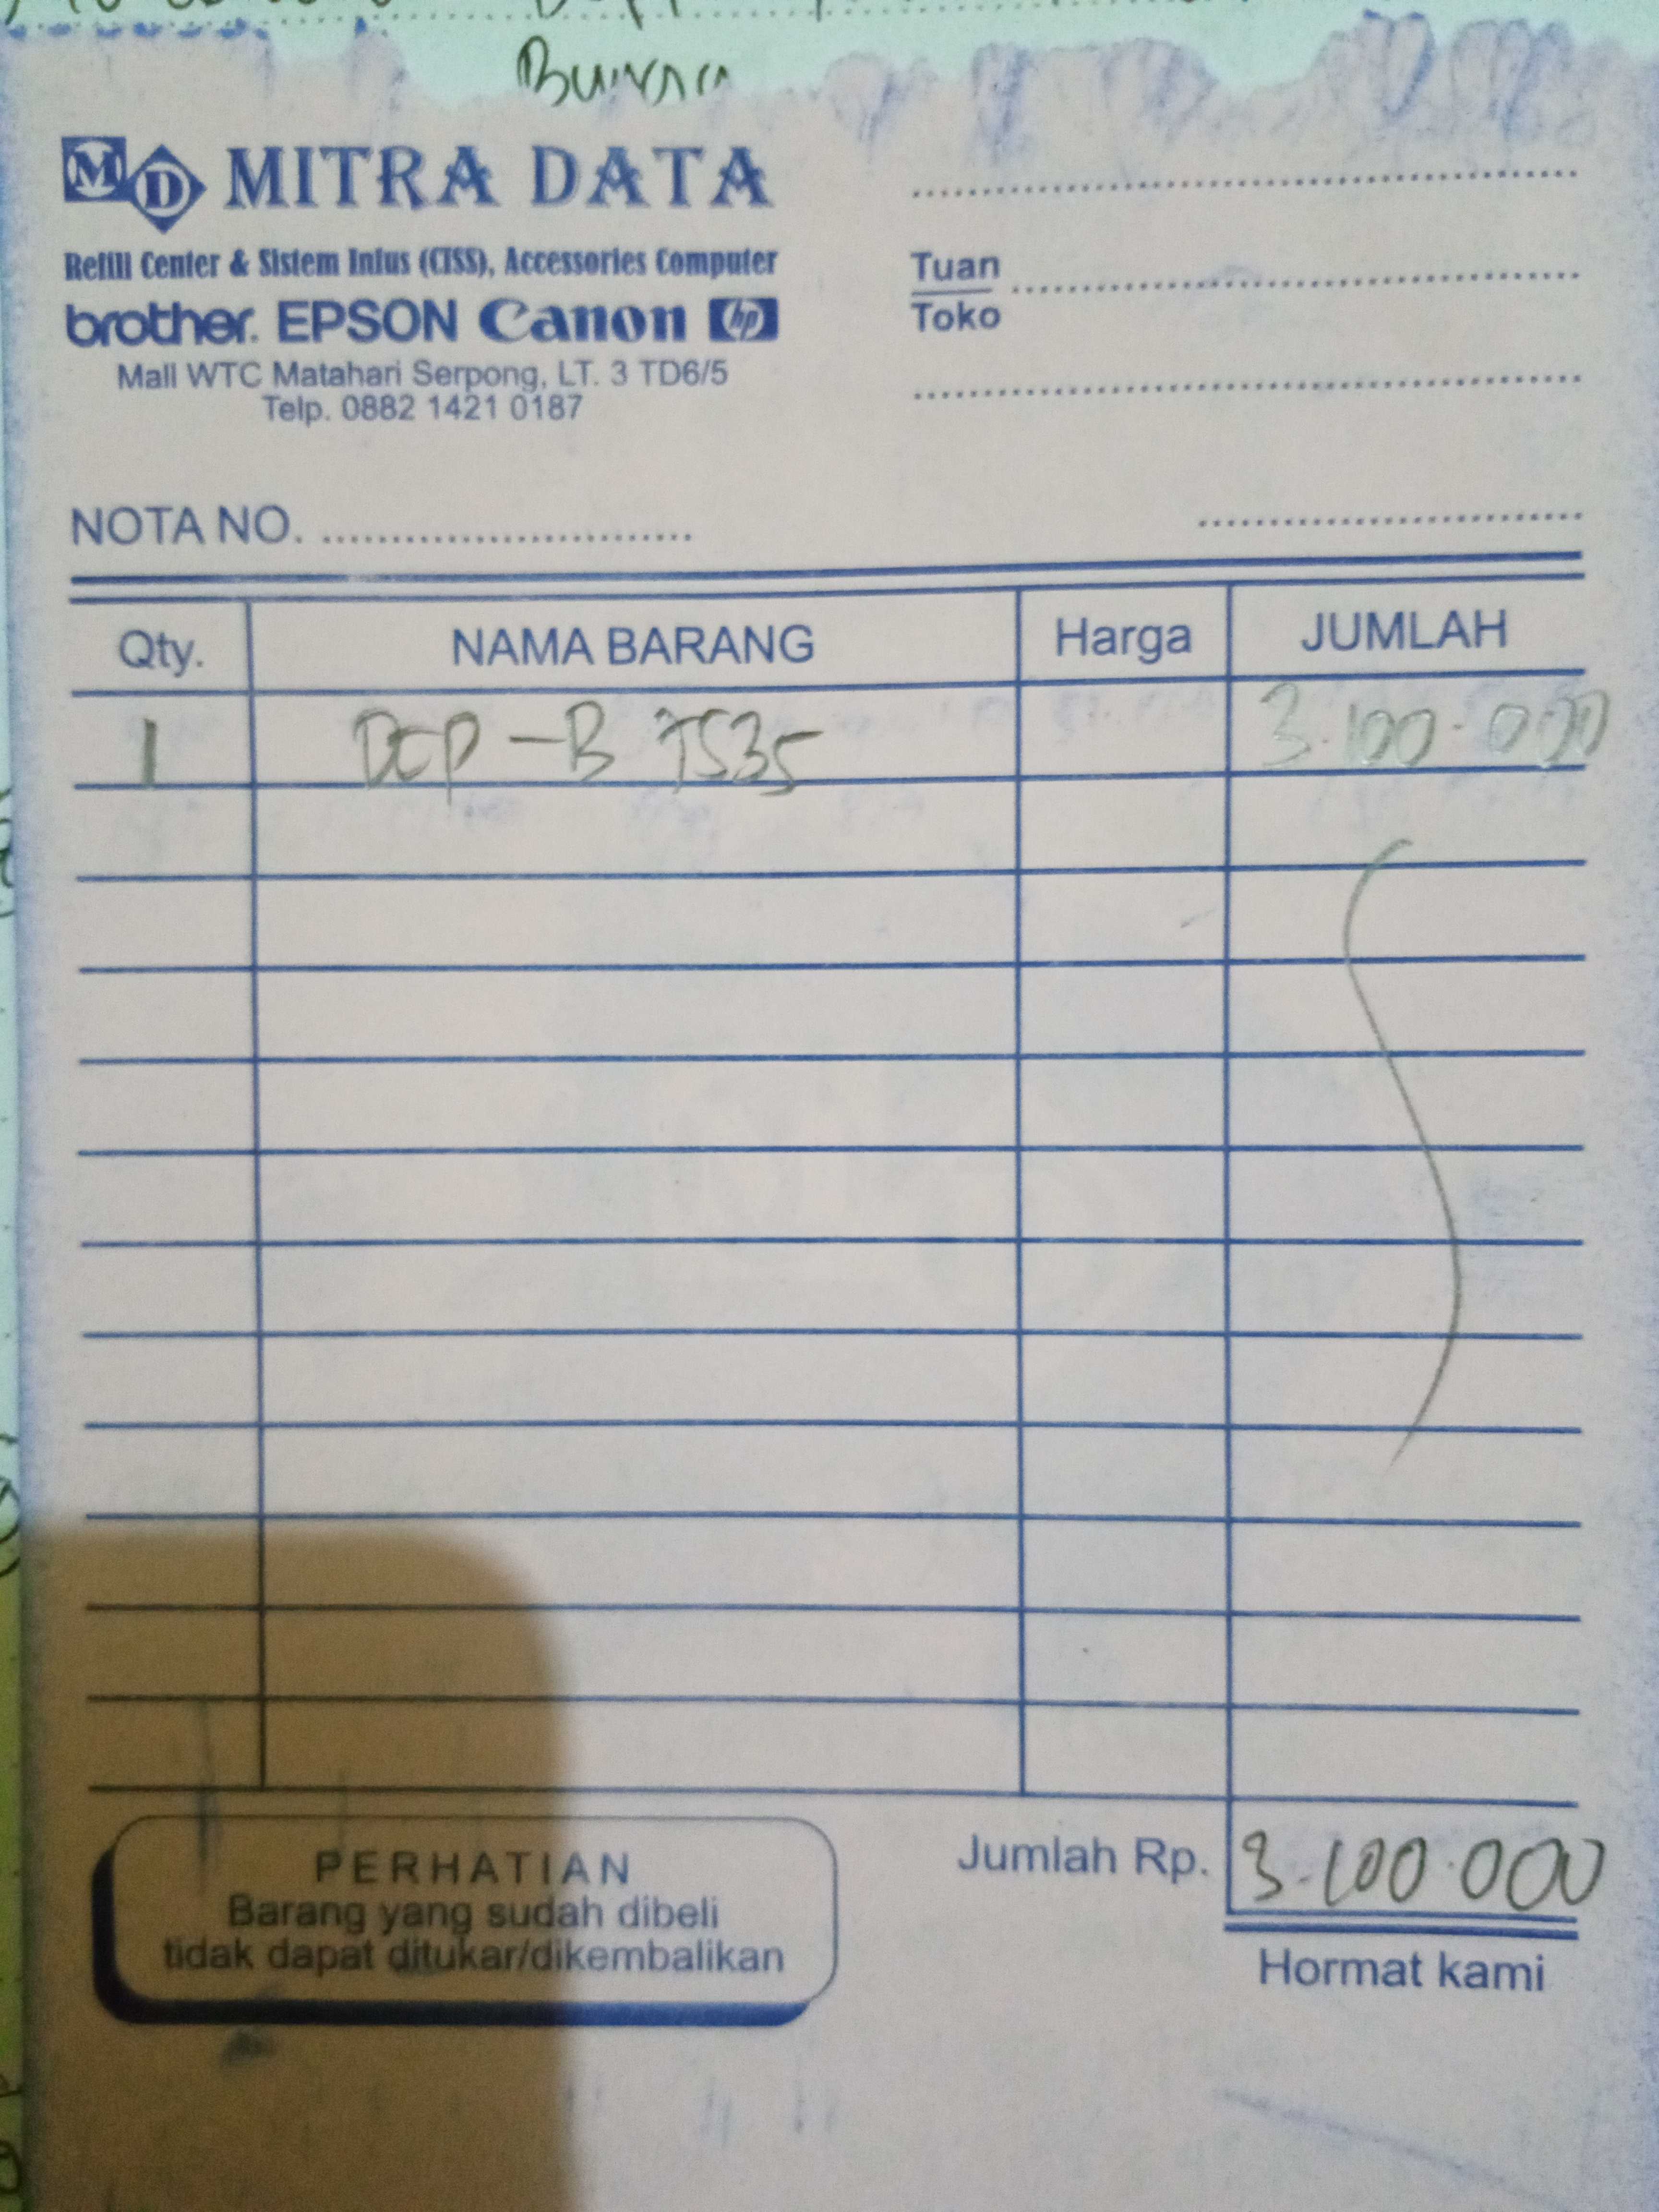 MD MITRA DATA
Refill Center & Sistem Infus (CISS), Accessories Computer
brother. EPSON Canon hp
Mall WTC Matahari Serpong, LT. 3 TD6/5
Telp. 0882 1421 0187
Tuan
Toko
NOTA NO.
Qty. NAMA BARANG Harga JUMLAH
1 DCP-B 7535 3.100.000
Jumlah Rp. 3.100.000
PERHATIAN
Barang yang sudah dibeli
tidak dapat ditukar/dikembalikan
Hormat kami